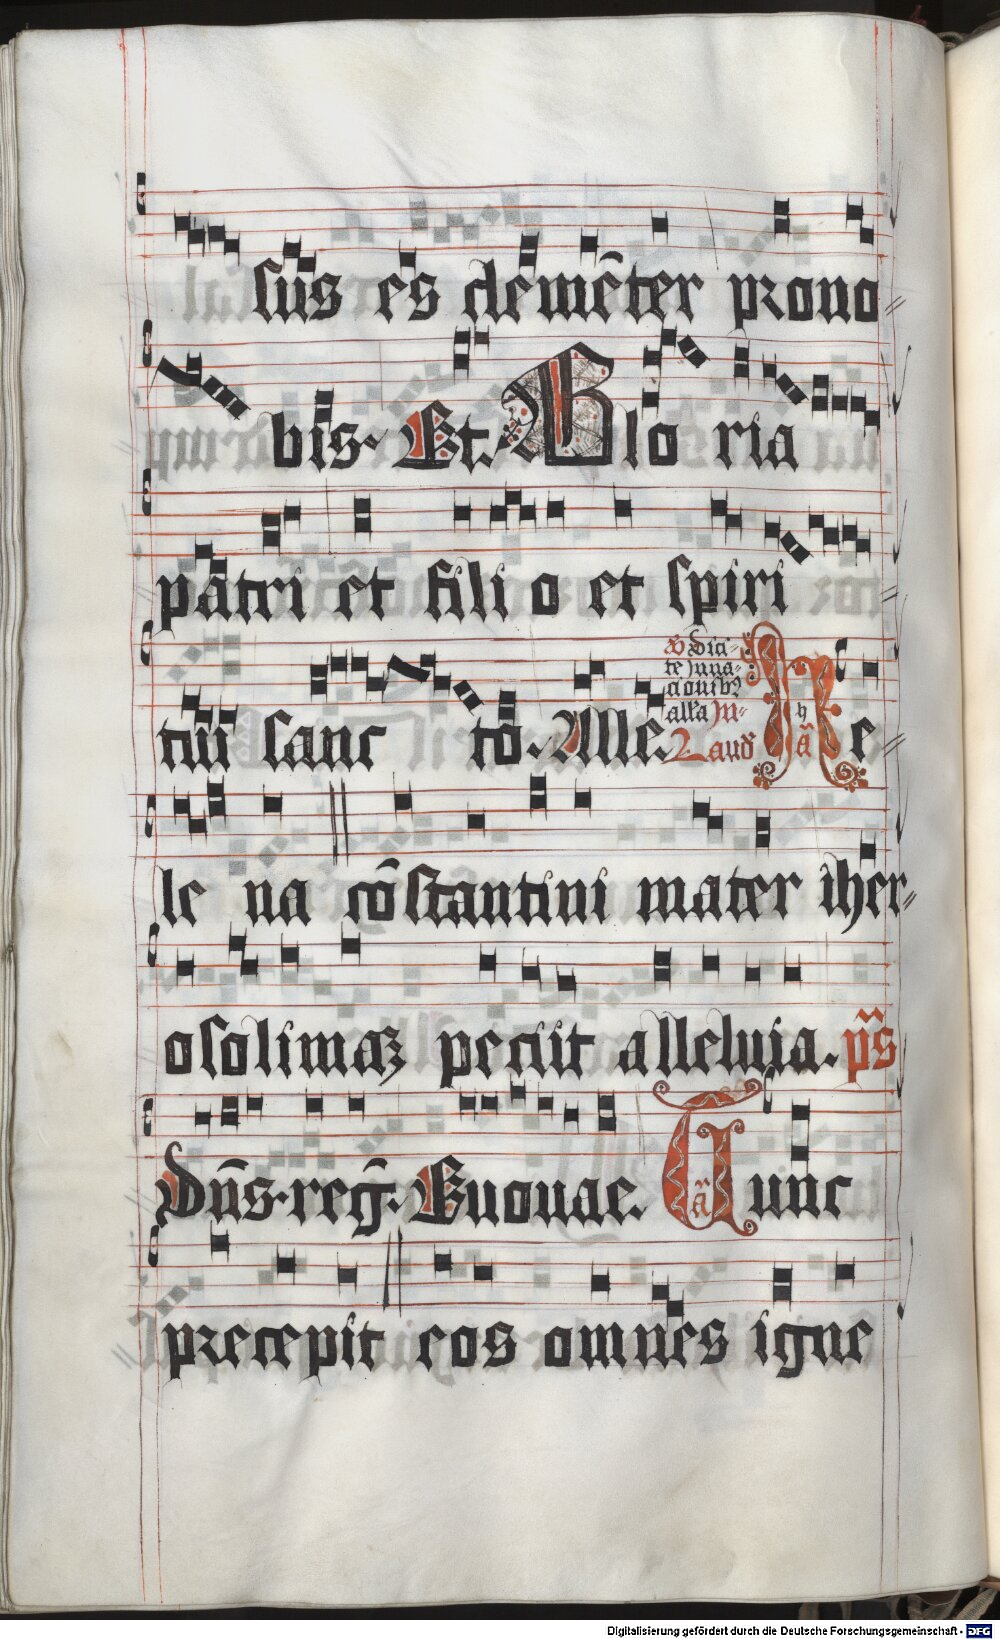 sus es clemēter prono=
bis. Et. Glo ria
patri et fili o et spiri=
tui sanc to. Alle. H e=
V Dici
te Laudˀ
le na cōstantini mater iher=
osolimaꝫ peciit alleluia. ps̄
Dn̄s. reḡ. Euouae. Tunc
precepit eos omnes igne
Digitalisierung gefördert durch die Deutsche Forschungsgemeinschaft - DFG